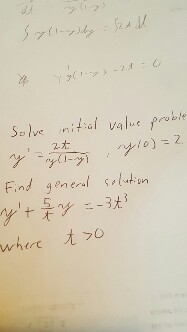 ∫ y(1-y)dy = ∫2t dt
y'y(1-y) -2t = 0
Solve initial value proble
y' = 2t / y(1-y) , y(0) = 2
Find general solution
y' + 5/t y = -3t³
where t > 0